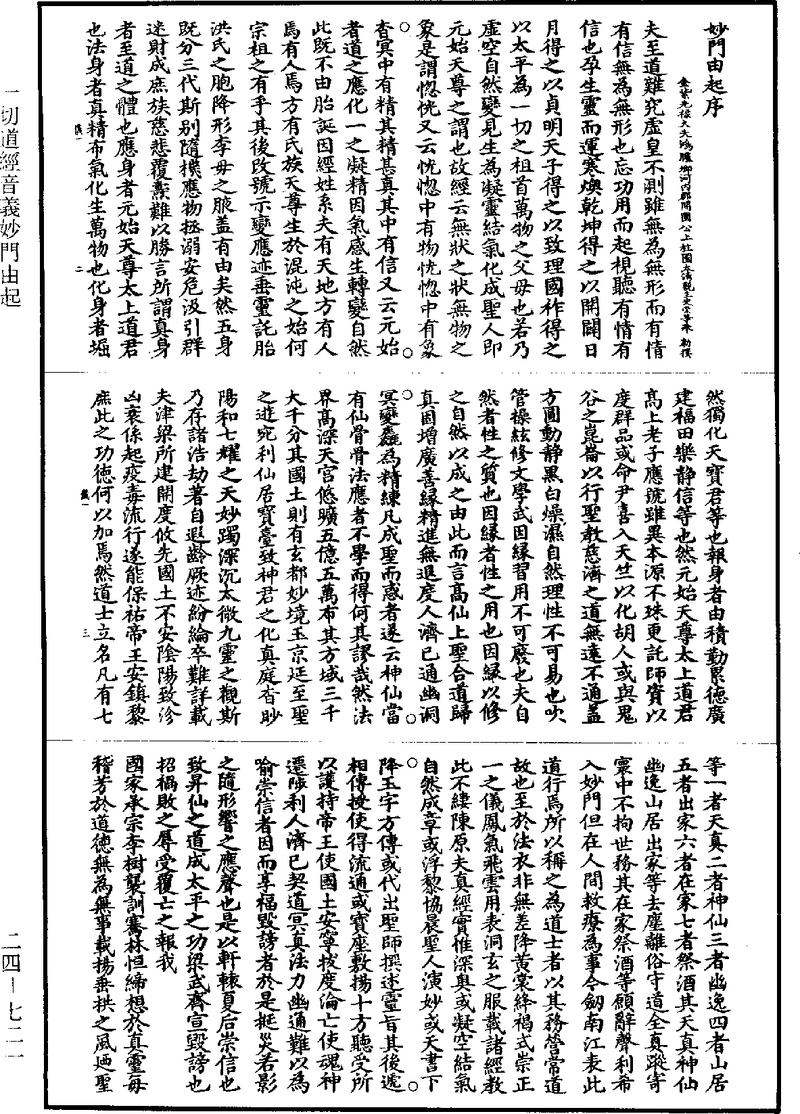 妙門由起序
金紫光祿大夫鴻臚卿河內郡開國公上柱國太清觀主史崇等奉 勅撰
夫至道難究虛皇不測雖無為無形而有情
有信無為無形也忘功用而起視聽有情有
信也孕生靈而運寒燠乾坤得之以開闢日
月得之以貞明天子得之以致理國祚得之
以太平為一切之祖首萬物之父母也若乃
虛空自然變見生為凝靈結氣化成聖人即
元始天尊之謂也故經云無狀之狀無物之
象是謂惚恍又云恍惚中有物恍惚中有象
杳冥中有精其精甚真其中有信又云元始
者道之應化一之凝精因氣感生轉變自然
此既不由胎誕因經姓系夫有天地方有人
焉有人焉方有氏族天尊生於混沌之始何
宗祖之有乎其後改號示變應迹垂靈託胎
洪氏之胞降形李母之腋蓋有由矣然五身
既分三代斯別隨機應物拯溺安危汲引群
迷財成庶族慈悲覆燾難以勝言所謂真身
者至道之體也應身者元始天尊太上道君
也法身者真精布氣化生萬物也化身者堀
然獨化天寶君等也報身者由積勤累德廣
建福田樂靜信等也然元始天尊太上道君
高上老子應號雖異本源不殊更託師資以
度群品或命尹喜入天竺以化胡人或與鬼
谷之崑崙以行聖教慈濟之道無遠不通蓋
方圓動靜黑白燥濕自然理性不可易也吹
管操絃修文學武因緣習用不可廢也夫自
然者性之質也因緣者性之用也因緣以修
之自然以成之由此而言高仙上聖合道歸
真固增廣善緣精進無退度人濟己通幽洞
冥變麤為精練凡成聖而惑者遂云神仙當
有仙骨骨法應者不學而得何其謬哉然法
界高深天宮悠曠五億五萬布其方域三千
大千分其國土則有玄都妙境玉京延至聖
之遊宛利仙居寶臺致神君之化真庭杳眇
陽和七燿之天妙躅深沉太微九靈之觀斯
乃存諸浩劫著自遐齡厥迹紛綸卒難詳載
夫津梁所建開度攸先國土不安陰陽致沴
凶衰係起疫毒流行遂能保祐帝王安鎮黎
庶此之功德何以加焉然道士立名凡有七
等一者天真二者神仙三者幽逸四者山居
五者出家六者在家七者祭酒其天真神仙
幽逸山居出家等去塵離俗守道全真蹤寄
寰中不拘世務其在家祭酒等願辭聲利希
入妙門但在人間救療為事今劒南江表此
道行焉所以稱之為道士者以其務營常道
故也至於法衣非無差降黃裳絳褐式崇正
一之儀鳳氣飛雲用表洞玄之服載諸經教
此不縷陳原夫真經寶惟深奧或凝空結氣
自然成章或浮黎協晨聖人演妙或天書下
降玉字方傳或代出聖師撰述靈旨其後遞
相傳授使得流通或寶座敷揚十方聽受所
以護持帝王使國土安寧拔度淪亡使魂神
遷陟利人濟己契道冥真法力幽通難以為
喻崇信者因而享福毀謗者於是挻災若影
之隨形響之應聲也是以軒轅夏后崇信也
致昇仙之道成太平之功梁武齊宣毀謗也
招禍敗之辱受覆亡之報我
國家承宗李樹襲訓騫林恒締想於真靈每
稽芳於道德無為無事載揚垂拱之風迺聖
一切道經音義妙門由起
二四－七二一
二
三